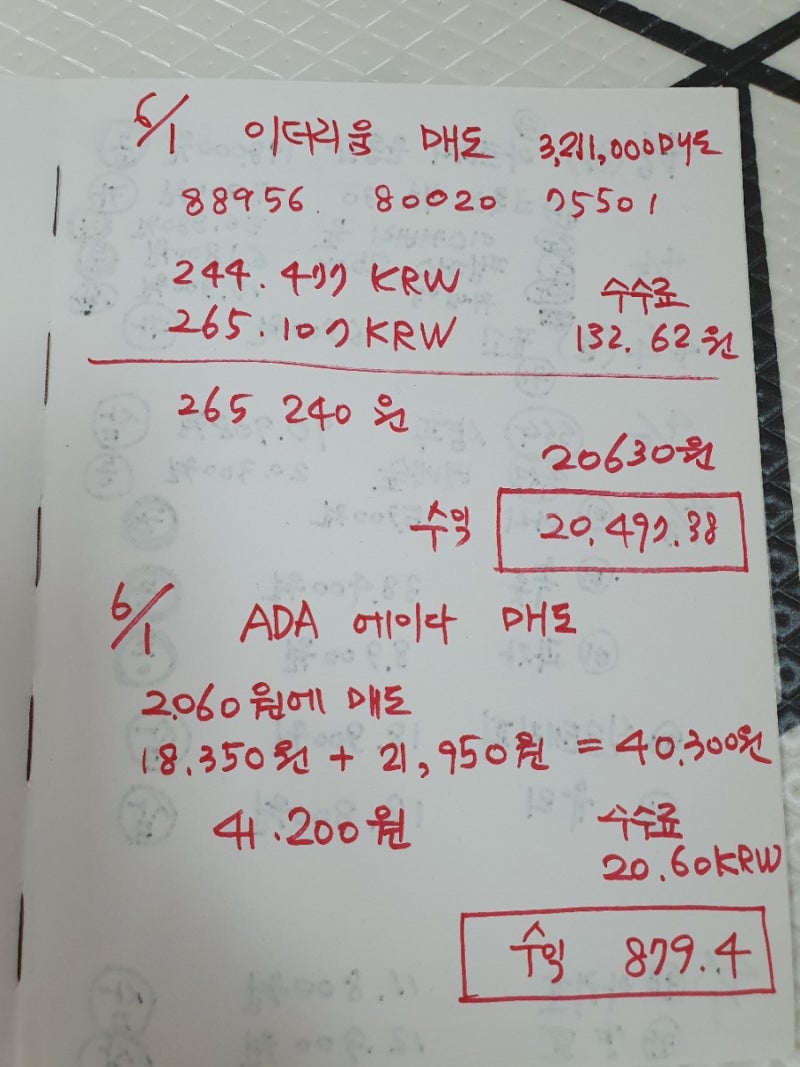 6/1 이더리움 매도 3,211,000매도
88956. 80020 75501
244.477 KRW
수수료
265.107 KRW
132.62원
265 240원
20630원
수익 20,497.38
6/1 ADA 에이다 매도
2.060원에 매도
18.350원 + 21,950원 = 40.300원
41.200원
수수료
20.60KRW
수익 879.4